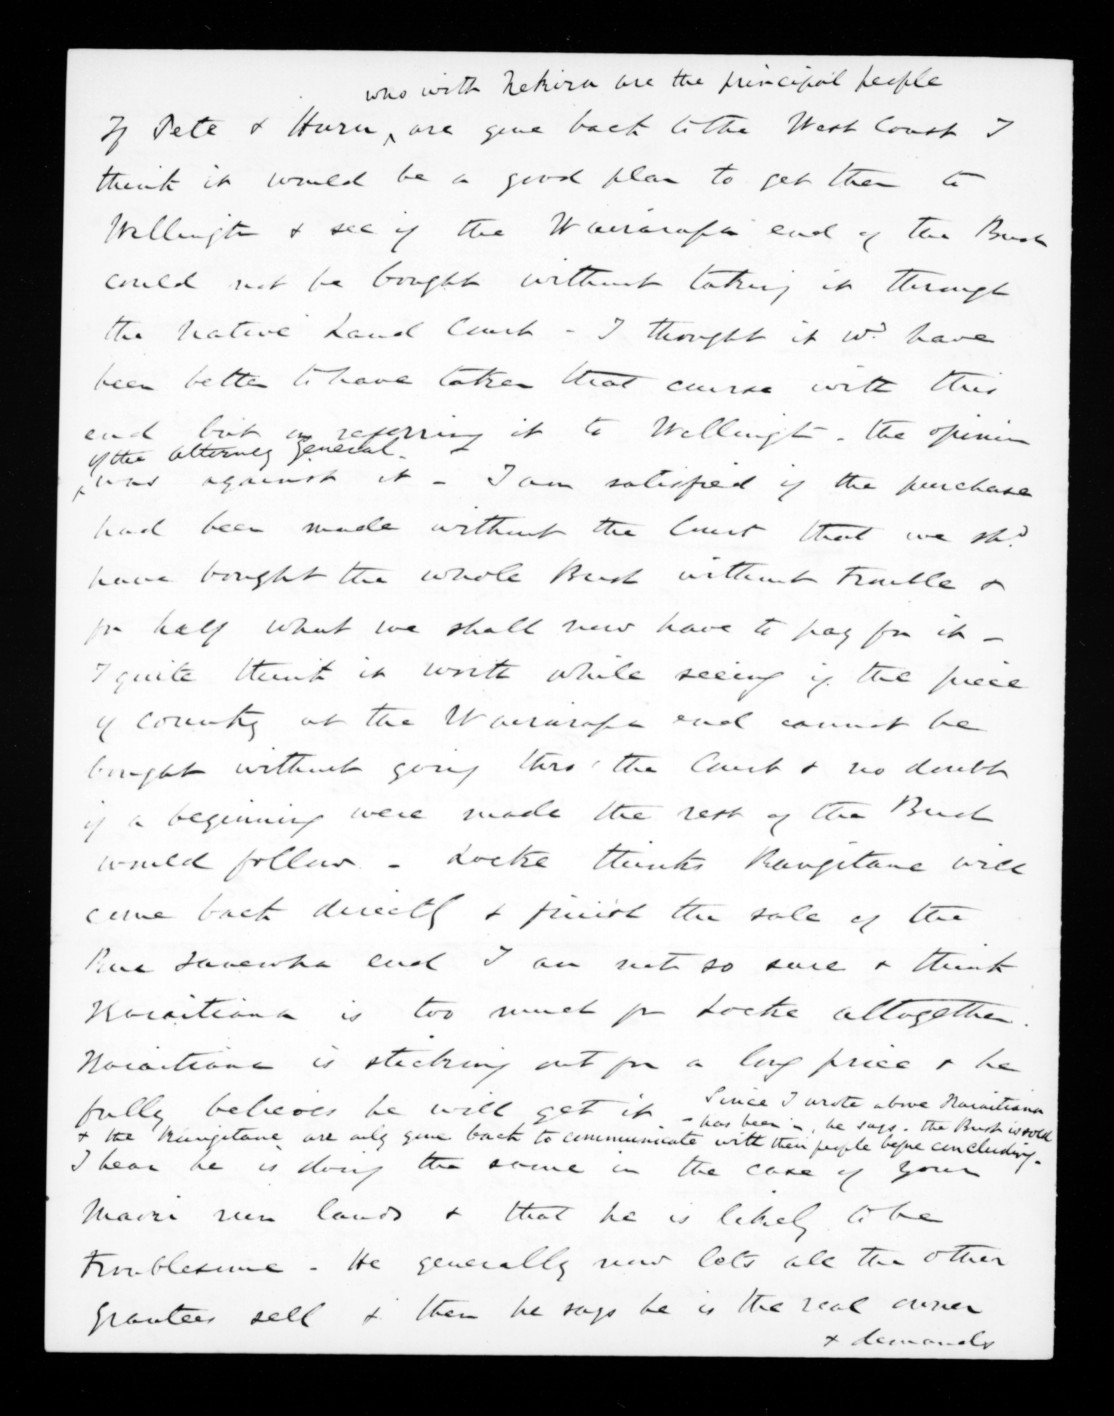 who with Nekora are the principal people
If Pete & Huru ^ are gone back to the West Coast I
think it would be a good plan to get them to
Wellington & see if the Wairarapa end of the Bush
could not be bought without taking it through
the Native Land Court - I thought it wd. have
been better to have taken that course with this
end but on referring it to Wellington - the opinion
of the Attorney General -
^ was against it - I am satisfied if the purchase
had been made without the Court that we shd.
have bought the whole Bush without trouble &
for half what we shall now have to pay for it -
I quite think it worth while seeing if the piece
of country at the Wairarapa end cannot be
bought without going thro' the Court & no doubt
if a beginning were made the rest of the Bush
would follow - Locke thinks Rangitane will
come back directly & finish the sale of the
Rua Taniwha end I am not so sure & think
Karaitiana is too much for Locke altogether.
Karaitiana is sticking out for a long price & he
fully believes he will get it - Since I wrote above Karaitiana
has been in, he says - the Bush is sold
& the Rangitane are only gone back to communicate with their people before concluding -
I hear he is doing the same in the case of your
Maori run lands & that he is likely to be
troublesome - He generally now lets all the other
Grantees sell & then he says he is the real owner
& demands